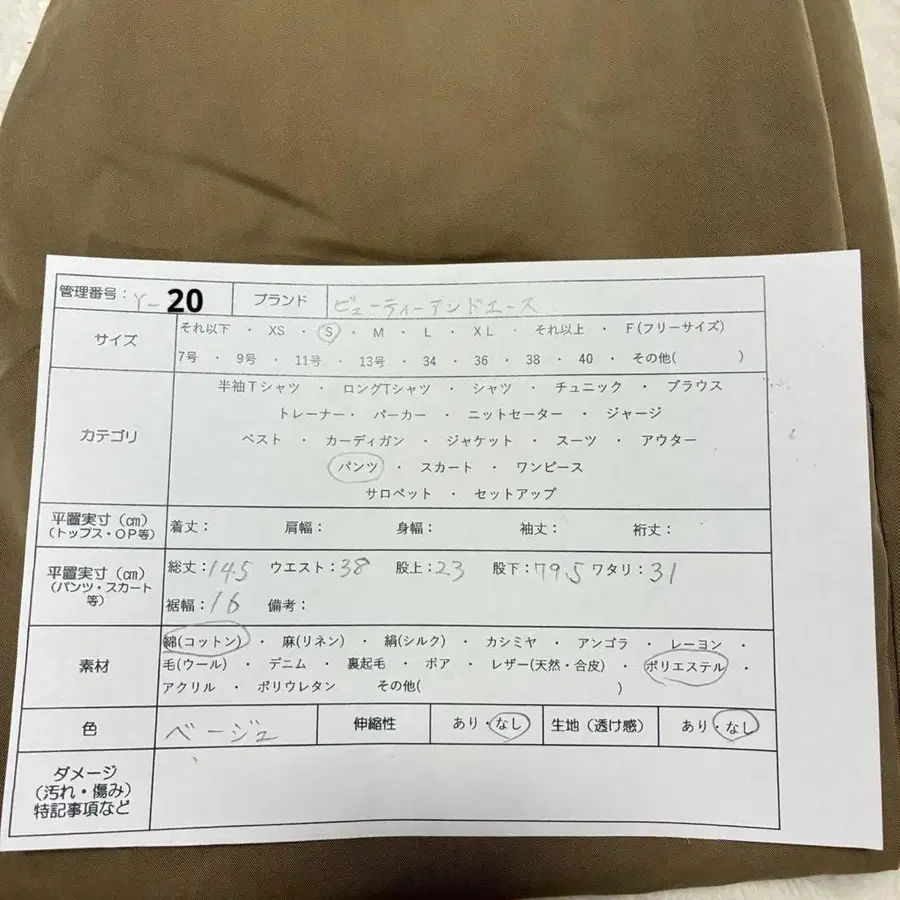 管理番号：Y- 20 ブランド ビューティーアンドユース
サイズ それ以下 ・ XS ・ S ・ M ・ L ・ XL ・ それ以上 ・ F(フリーサイズ)
7号 ・ 9号 ・ 11号 ・ 13号 ・ 34 ・ 36 ・ 38 ・ 40 ・ その他( )
カテゴリ
半袖Tシャツ ・ ロングTシャツ ・ シャツ ・ チュニック ・ ブラウス
トレーナー・ パーカー ・ ニットセーター ・ ジャージ
ベスト ・ カーディガン ・ ジャケット ・ スーツ ・ アウター
パンツ ・ スカート ・ ワンピース
サロペット ・ セットアップ
平置実寸（cm）
（トップス・OP等）
着丈： 肩幅： 身幅： 袖丈： 裄丈：
平置実寸（cm）
（パンツ・スカート
等）
総丈：145 ウエスト：38 股上：23 股下：79.5 ワタリ：31
裾幅：16 備考：
素材
綿(コットン) ・ 麻(リネン) ・ 絹(シルク) ・ カシミヤ ・ アンゴラ ・ レーヨン ・
毛(ウール) ・ デニム ・ 裏起毛 ・ ボア ・ レザー(天然・合皮) ・ ポリエステル ・
アクリル ・ ポリウレタン その他( )
色 ベージュ 伸縮性 あり・なし 生地（透け感） あり・なし
ダメージ
（汚れ・傷み）
特記事項など